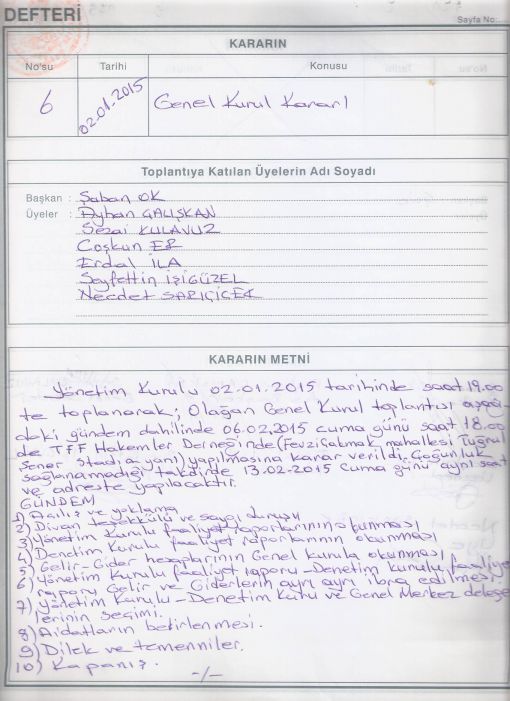 DEFTERİ
Sayfa No:
KARARIN
No'su Tarihi Konusu
6 02.01.2015 Genel Kurul Kararı
Toplantıya Katılan Üyelerin Adı Soyadı
Başkan : Şaban OK
Üyeler : Ayhan ÇALIŞKAN
Sezai KULAVUZ
Coşkun ER
Erdal İLA
Seyfettin İŞİGÜZEL
Necdet SARIÇİÇEK
KARARIN METNİ
Yönetim Kurulu 02.01.2015 tarihinde saat 19.00
te toplanarak; Olağan Genel Kurul toplantısı aşağı-
daki gündem dahilinde 06.02.2015 cuma günü saat 18.00
de TFF Hakemler Derneğinde (Fevziçakmak mahallesi Tuğrul
Şener Stadia yanı) yapılmasına karar verildi. Çoğunluk
sağlanamadığı takdirde 13.02.2015 Cuma günü aynı saat
ve adreste yapılacaktır.
GÜNDEM
1) Açılış ve yoklama
2) Divan teşekkülü ve saygı duruşu
3) Yönetim Kurulu faaliyet raporlarının okunması
4) Denetim Kurulu faaliyet raporlarının okunması
5) Gelir-Gider hesaplarının Genel kurula okunması
6) Yönetim Kurulu faaliyet raporu - Denetim kurulu faaliye
raporu Gelir ve Giderlerin ayrı ayrı ibra edilmesi
7) Yönetim Kurulu - Denetim Kurulu ve Genel Merkez delege
lerinin seçimi.
8) Aidatların belirlenmesi.
9) Dilek ve temenniler.
10) Kapanış.
-/-